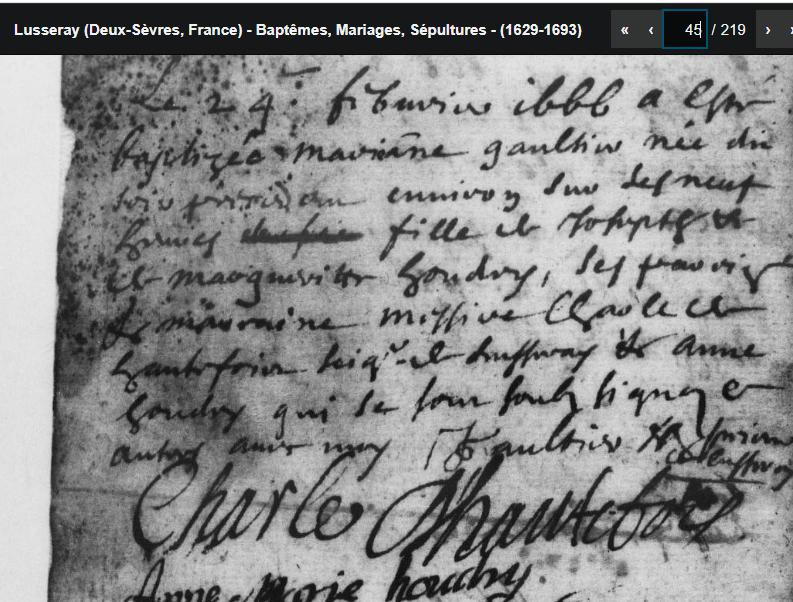 Lusseray (Deux-Sèvres, France) - Baptêmes, Mariages, Sépultures - (1629-1693) « ‹ 45 / 219 ›
Le 24e febvrier 1666 a esté
baptizée marianne gaultier née du
soir environ sur les neuf
heures fille de Joseph
et de marguerite houdry, ses parrin
et marraine messire Charle de
hautefoire seigr de lusseray et anne
houdry qui se sont soubz signez et
autres avec moy Gaultier
de lusseray
Charle Dhautefois
Anne Marie houdry